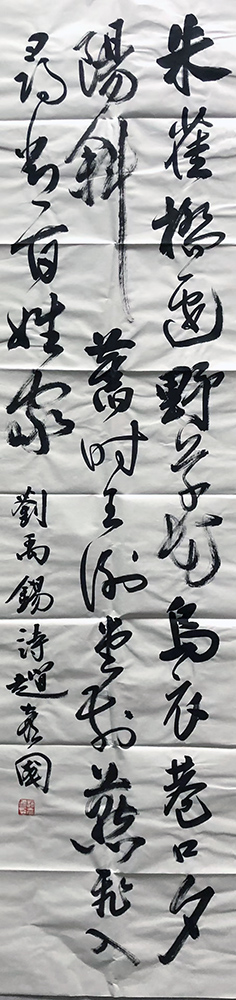 朱雀橋邊野草花烏衣巷口夕
陽斜舊時王謝堂前燕飛入
尋常百姓家 劉禹錫詩趙國